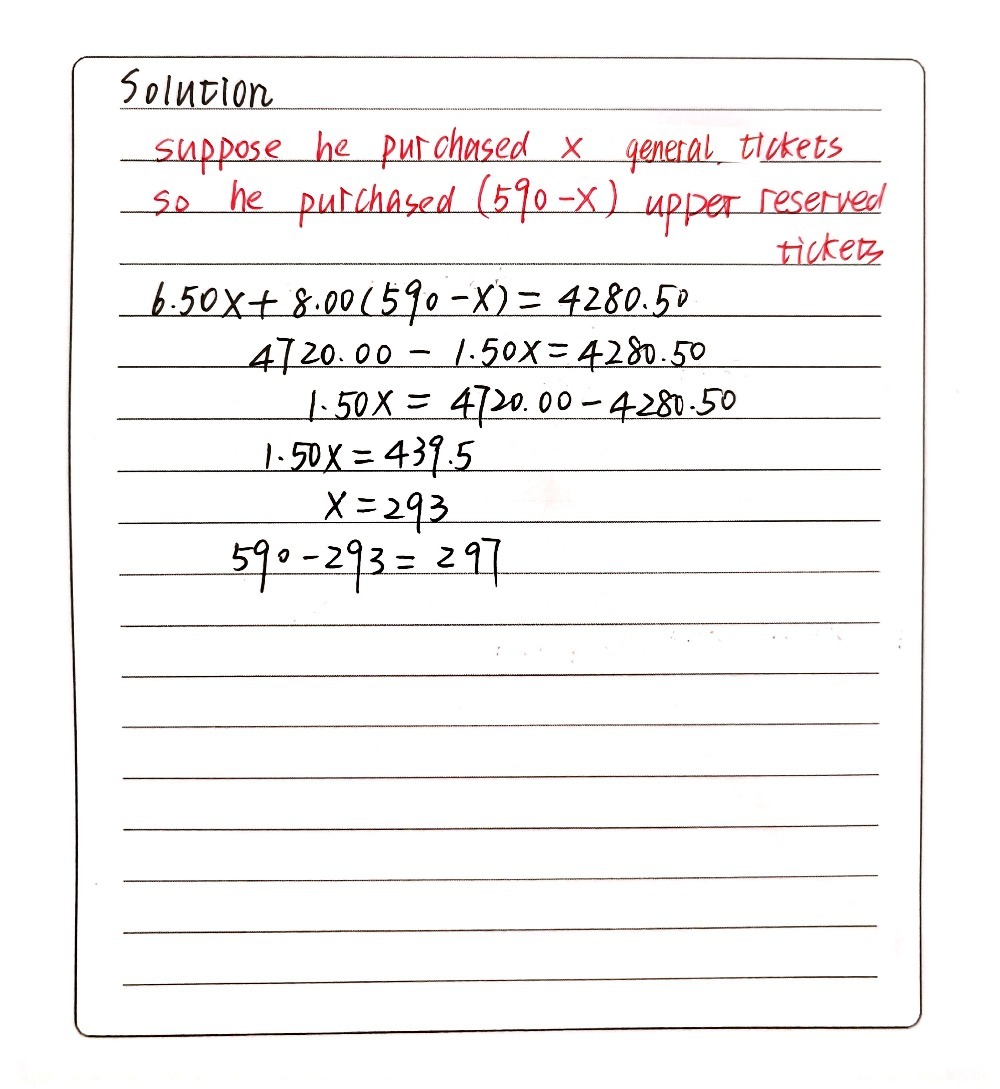 Solution
suppose he purchased x general tickets
so he purchased (590-x) upper reserved
tickets
6.50x+ 8.00(590-x) = 4280.50
4720.00 - 1.50x=4280.50
1.50x = 4720.00-4280.50
1.50x = 439.5
x = 293
590-293 = 297